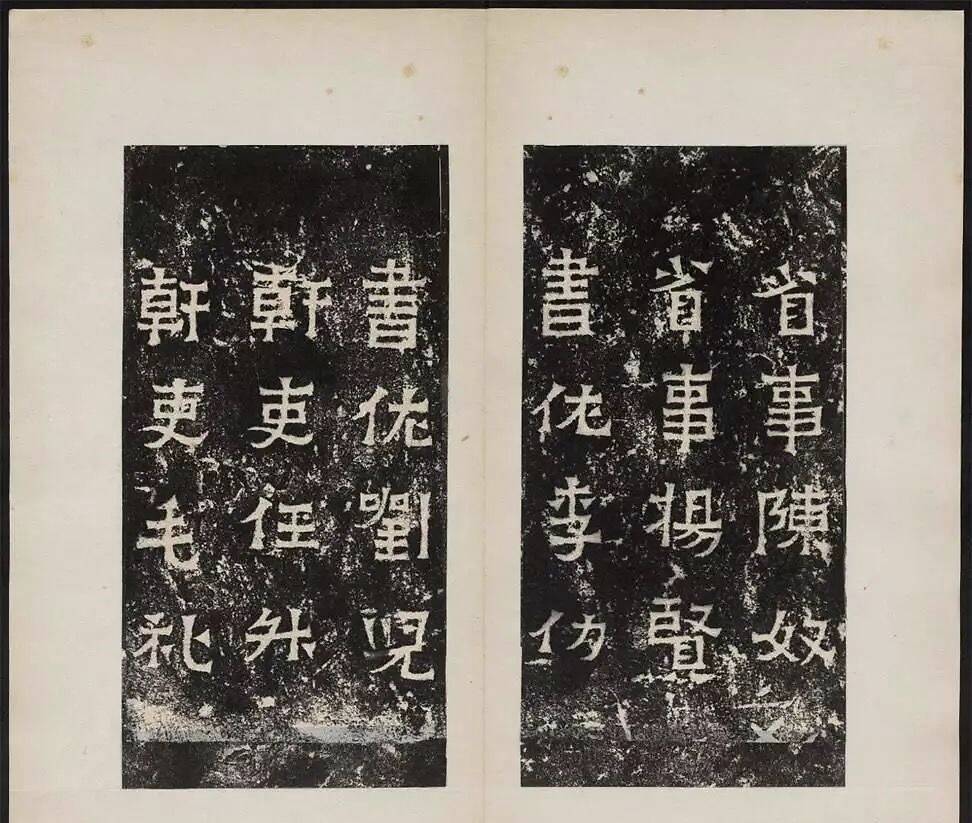 省事陳奴
省事楊賢
書佐李仂
書佐劉兒
幹吏任升
幹吏毛礼